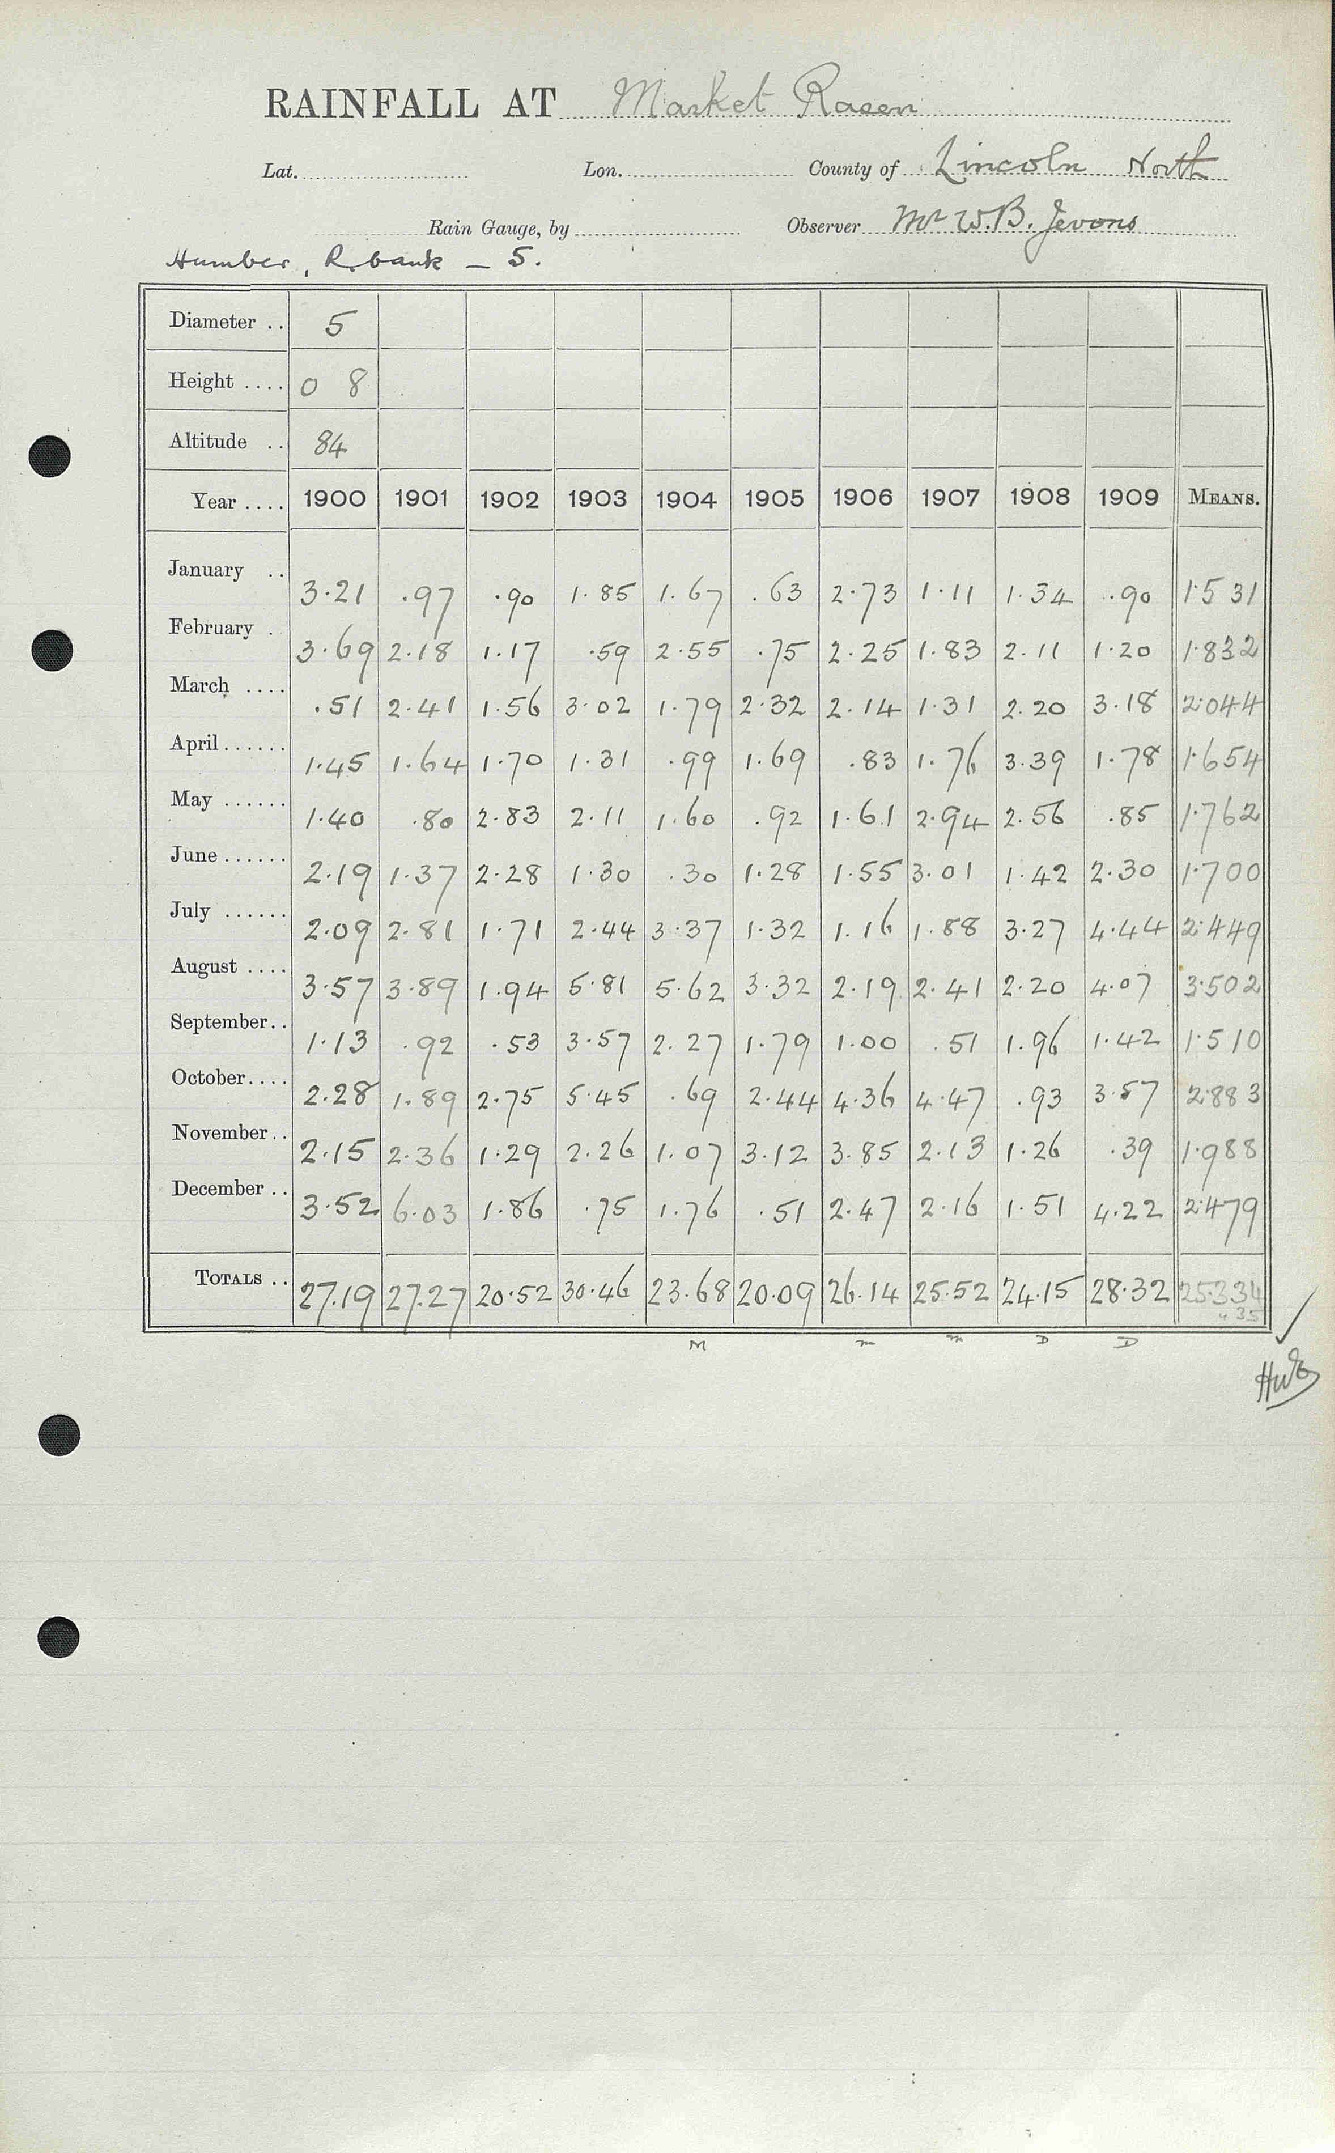 RAINFALL AT Market Rasen
Lat. Lon. County of Lincoln North
Rain Gauge, by Observer Mr W.B. Jevons
Humber, R. bank - 5.
Diameter .. 5
Height .... 0 8
Altitude .. 84
Year .... 1900 1901 1902 1903 1904 1905 1906 1907 1908 1909 MEANS.
January .. 3.21 .97 .90 1.85 1.67 .63 2.73 1.11 1.34 .90 1.531
February . 3.69 2.18 1.17 .59 2.55 .75 2.25 1.83 2.11 1.20 1.832
March .... .51 2.41 1.56 3.02 1.79 2.32 2.14 1.31 2.20 3.18 2.044
April ...... 1.45 1.64 1.70 1.31 .99 1.69 .83 1.76 3.39 1.78 1.654
May ...... 1.40 .80 2.83 2.11 1.60 .92 1.61 2.94 2.56 .85 1.762
June ...... 2.19 1.37 2.28 1.30 .30 1.28 1.55 3.01 1.42 2.30 1.700
July ...... 2.09 2.81 1.71 2.44 3.37 1.32 1.16 1.88 3.27 4.44 2.449
August .... 3.57 3.89 1.94 5.81 5.62 3.32 2.19 2.41 2.20 4.07 3.502
September.. 1.13 .92 .53 3.57 2.27 1.79 1.00 .51 1.96 1.42 1.510
October.... 2.28 1.89 2.75 5.45 .69 2.44 4.36 4.47 .93 3.57 2.883
November.. 2.15 2.36 1.29 2.26 1.07 3.12 3.85 2.13 1.26 .39 1.988
December .. 3.52 6.03 1.86 .75 1.76 .51 2.47 2.16 1.51 4.22 2.479
TOTALS .. 27.19 27.27 20.52 30.46 23.68 20.09 26.14 25.52 24.15 28.32 25.334
35
M m m D D